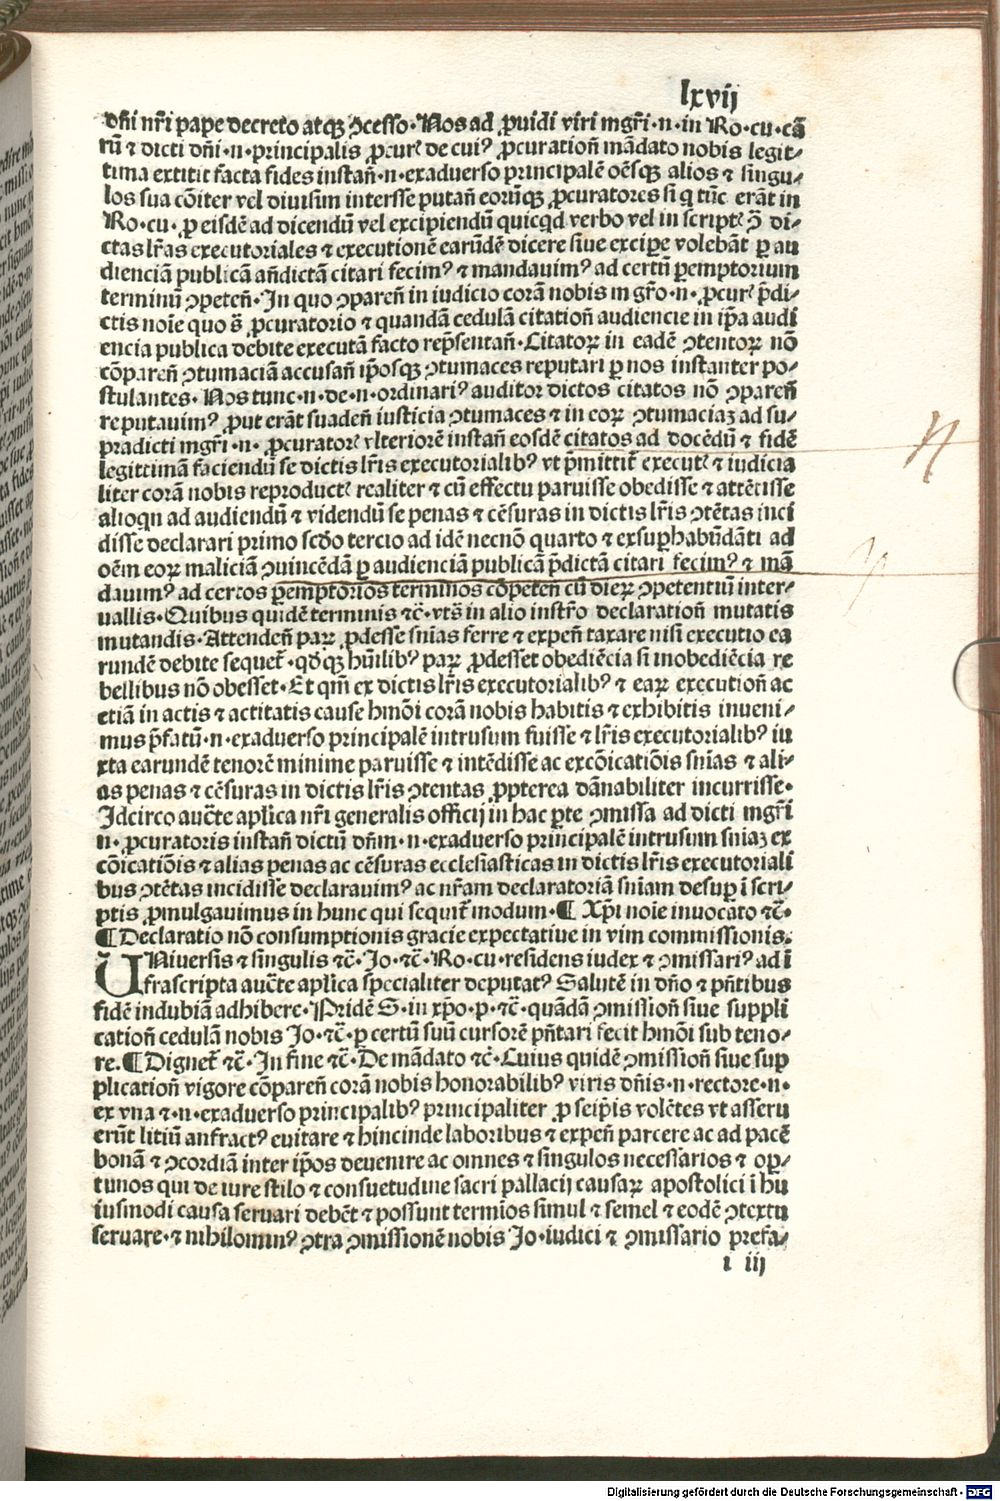 lxvij
dñi nr̃i pape decreto atq̃ ↄcesso·Nos ad ꝓuidi viri mgr̃i·n·in Ro·cu·cã
rũ ⁊ dicti dñi·n·principalis ꝓcurᷣ de cuiꝰ ꝓcurationñ mãdato nobis legit⸗
tima extitit facta fides instañ·n·exaduerso principalẽ oẽsqꝫ alios ⁊ singu⸗
los sua cõiter vel diuisim interesse putañ eorũqꝫ ꝓcuratores si q̃ tũc erãt in
Ro·cu·ꝓ eisdẽ ad dicendũ vel excipiendũ quicq̃d verbo vel in scriptꝭ ↄ̃ di⸗
ctas lr̃as executoriales ⁊ executionẽ earũdẽ dicere siue excipe volebãt ꝑ au
dienciã publicã añdictã citari fecimꝰ ⁊ mandauimꝰ ad certũ ꝑemptorium
terminũ ↄpeteñ·In quo ↄpareñ in iudicio corã nobis mgr̃o·n·ꝓcurᷣ p̃di⸗
ctis noĩe quo s̃ ꝓcuratorio ⁊ quandã cedulã citationñ audiencie in ip̃a audi
encia publica debite executã facto rep̃sentañ·Citatoꝝ in eadẽ ↄtentoꝝ nõ
cõpareñ ↄtumaciã accusañ ip̃osqꝫ ↄtumaces reputari ꝑ nos instanter po⸗
stulantes·Nos tunc·n·de·n·ordinariꝰ auditor dictos citatos nõ ↄpareñ
reputauimꝰ ꝓut erãt suadeñ iusticia ↄtumaces ⁊ in eoꝝ ↄtumaciaꝫ ad su⸗
pradicti mgr̃i·n·ꝓcuratorᷣ vlteriorẽ instañ eosdẽ citatos ad docẽdũ ⁊ fidẽ
legittimã faciendũ se dictis lr̃is executorialibꝰ vt p̃mittitᷣ executꝭ ⁊ iudicia
liter corã nobis reproductꝭ realiter ⁊ cũ effectu paruisse obedisse ⁊ attẽtisse
alioqn ad audiendũ ⁊ videndũ se penas ⁊ cẽsuras in dictis lr̃is ↄtẽtas inci
disse declarari primo scðo tercio ad idẽ necnõ quarto ⁊ exsuꝑhabũdãti ad
oẽm eoꝝ maliciã ↄuincẽdã ꝑ audienciã publicã p̃dictã citari fecimꝰ ⁊ mã
dauimꝰ ad certos ꝑemptorios terminos cõpeteñ cũ dieꝝ ↄpetentiũ inter⸗
uallis·Quibus quidẽ terminis ⁊c̃·vts̃ in alio instr̃o declarationñ mutatis
mutandis·Attendeñ paꝝ ꝓdesse snĩas ferre ⁊ expeñ taxare nisi executio ea
rundẽ debite sequetᷣ·q̃dqꝫ hũilibꝰ paꝝ ꝓdesset obediẽcia si inobediẽcia re
bellibus nõ obesset·Et qm̃ ex dictis lr̃is executorialibꝰ ⁊ eaꝝ executioñ ac
etiã in actis ⁊ actitatis cause hmõi corã nobis habitis ⁊ exhibitis inueni⸗
mus p̃fatũ·n·exaduerso principalẽ intrusum fuisse ⁊ lr̃is executorialibꝰ iu
xta earundẽ tenorẽ minime paruisse ⁊ intẽdisse ac excõicatiõis snĩas ⁊ ali⸗
as penas ⁊ cẽsuras in dictis lr̃is ↄtentas ꝓpterea dãnabiliter incurrisse·
Idcirco auc̃te apl̃ica nr̃i generalis officij in hac ꝑte ↄmissa ad dicti mgr̃i
n·ꝓcuratoris instañ dictũ dñm·n·exaduerso principalẽ intrusum snĩaꝫ ex
cõicatiõis ⁊ alias penas ac cẽsuras ecclesiasticas in dictis lr̃is executoriali
bus ↄtẽtas incidisse declarauimꝰ ac nr̃am declaratoriã snĩam desuꝑ ĩ scri⸗
ptis ꝓmulgauimus in hunc qui sequitᷣ modum·¶ Xp̃i noĩe inuocato ⁊c̃·
¶Declaratio nõ consumptionis gracie expectatiue in vim commissionis.
UNiuersis ⁊ singulis ⁊c̃·Jo·⁊c̃·Ro·cu·residens iudex ⁊ ↄmissariꝰ ad ĩ
frascripta auc̃te apl̃ica specialiter deputatꝰ Salutẽ in dño ⁊ pñtibus
fidẽ indubiã adhibere·Pridẽ S·in xp̃o·p·⁊c̃·quãdã ↄmissioñ siue suppli
cationñ cedulã nobis Jo·⁊c̃·ꝑ certũ suũ cursorẽ pñtari fecit hmõi sub teno⸗
re.¶Dignetᷣ ⁊c̃·In fine ⁊c̃·De mãdato ⁊c̃·Cuius quidẽ ↄmissioñ siue sup
plicationñ vigore cõpareñ corã nobis honorabilibꝰ viris dñis·n·rectore·n·
ex vna ⁊·n·exaduerso principalibꝰ principaliter ꝓ seip̃is volẽtes vt asseru
erũt litiũ anfractꝰ euitare ⁊ hincinde laboribus ⁊ expeñ parcere ac ad pacẽ
bonã ⁊ ↄcordiã inter ip̃os deuenire ac omnes ⁊ singulos necessarios ⁊ opꝛ⸗
tunos qui de iure stilo ⁊ consuetudine sacri pallacij causaꝝ apostolici ĩ hu
iusmodi causa seruari debẽt ⁊ possunt termĩos simul ⁊ semel ⁊ eodẽ ↄtextu
seruare·⁊ nihilominꝰ ↄtra ↄmissionẽ nobis Jo·iudici ⁊ ↄmissario prefa⸗
i iii
Digitalisierung gefördert durch die Deutsche Forschungsgemeinschaft - DFG